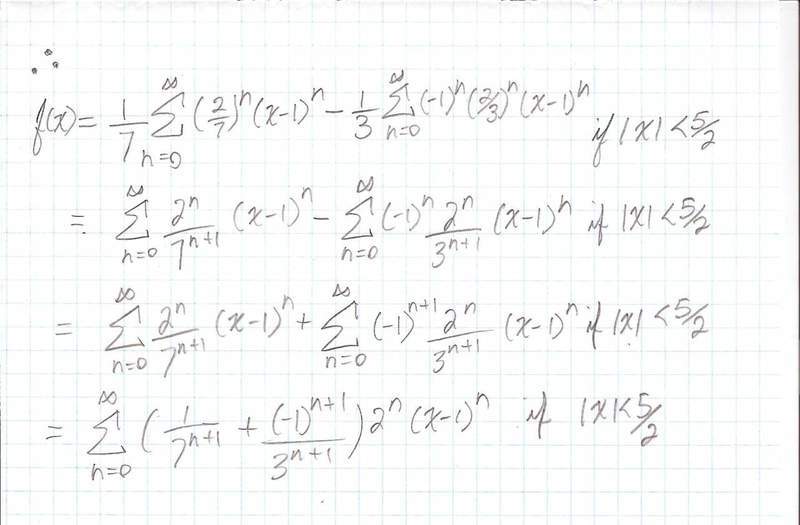 ∴
f(x) = 1/7 ∑_{n=0}^{∞} (2/7)^n (x-1)^n - 1/3 ∑_{n=0}^{∞} (-1)^n (2/3)^n (x-1)^n if |x| < 5/2
= ∑_{n=0}^{∞} 2^n/7^{n+1} (x-1)^n - ∑_{n=0}^{∞} (-1)^n 2^n/3^{n+1} (x-1)^n if |x| < 5/2
= ∑_{n=0}^{∞} 2^n/7^{n+1} (x-1)^n + ∑_{n=0}^{∞} (-1)^{n+1} 2^n/3^{n+1} (x-1)^n if |x| < 5/2
= ∑_{n=0}^{∞} (1/7^{n+1} + (-1)^{n+1}/3^{n+1}) 2^n (x-1)^n if |x| < 5/2